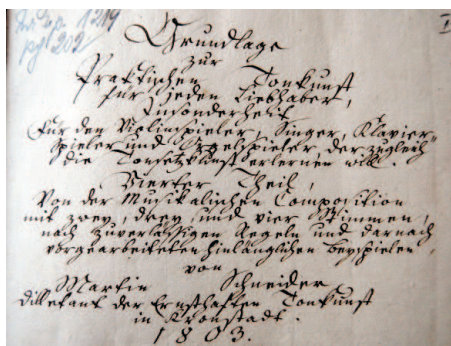 1219
pag 202
I
Grundlage
zur
Praktischen Tonkunst
für jeden Liebhaber,
Insonderheit
Für den Violinspieler, Singer, Klavier-
spieler und Orgelspieler der zugleich
die Tonsetzkunst erlernen will.
Vierter Theil,
Von der Musikalischen Composition
mit zwey, drey und vier Stimmen,
nach zuverlässigen Regeln und darnach
vorgearbeiteten hinlänglichen beyspielen,
von
Martin Schneider
dilletant der Ernsthaften Tonkunst
in Kronstadt.
1803.